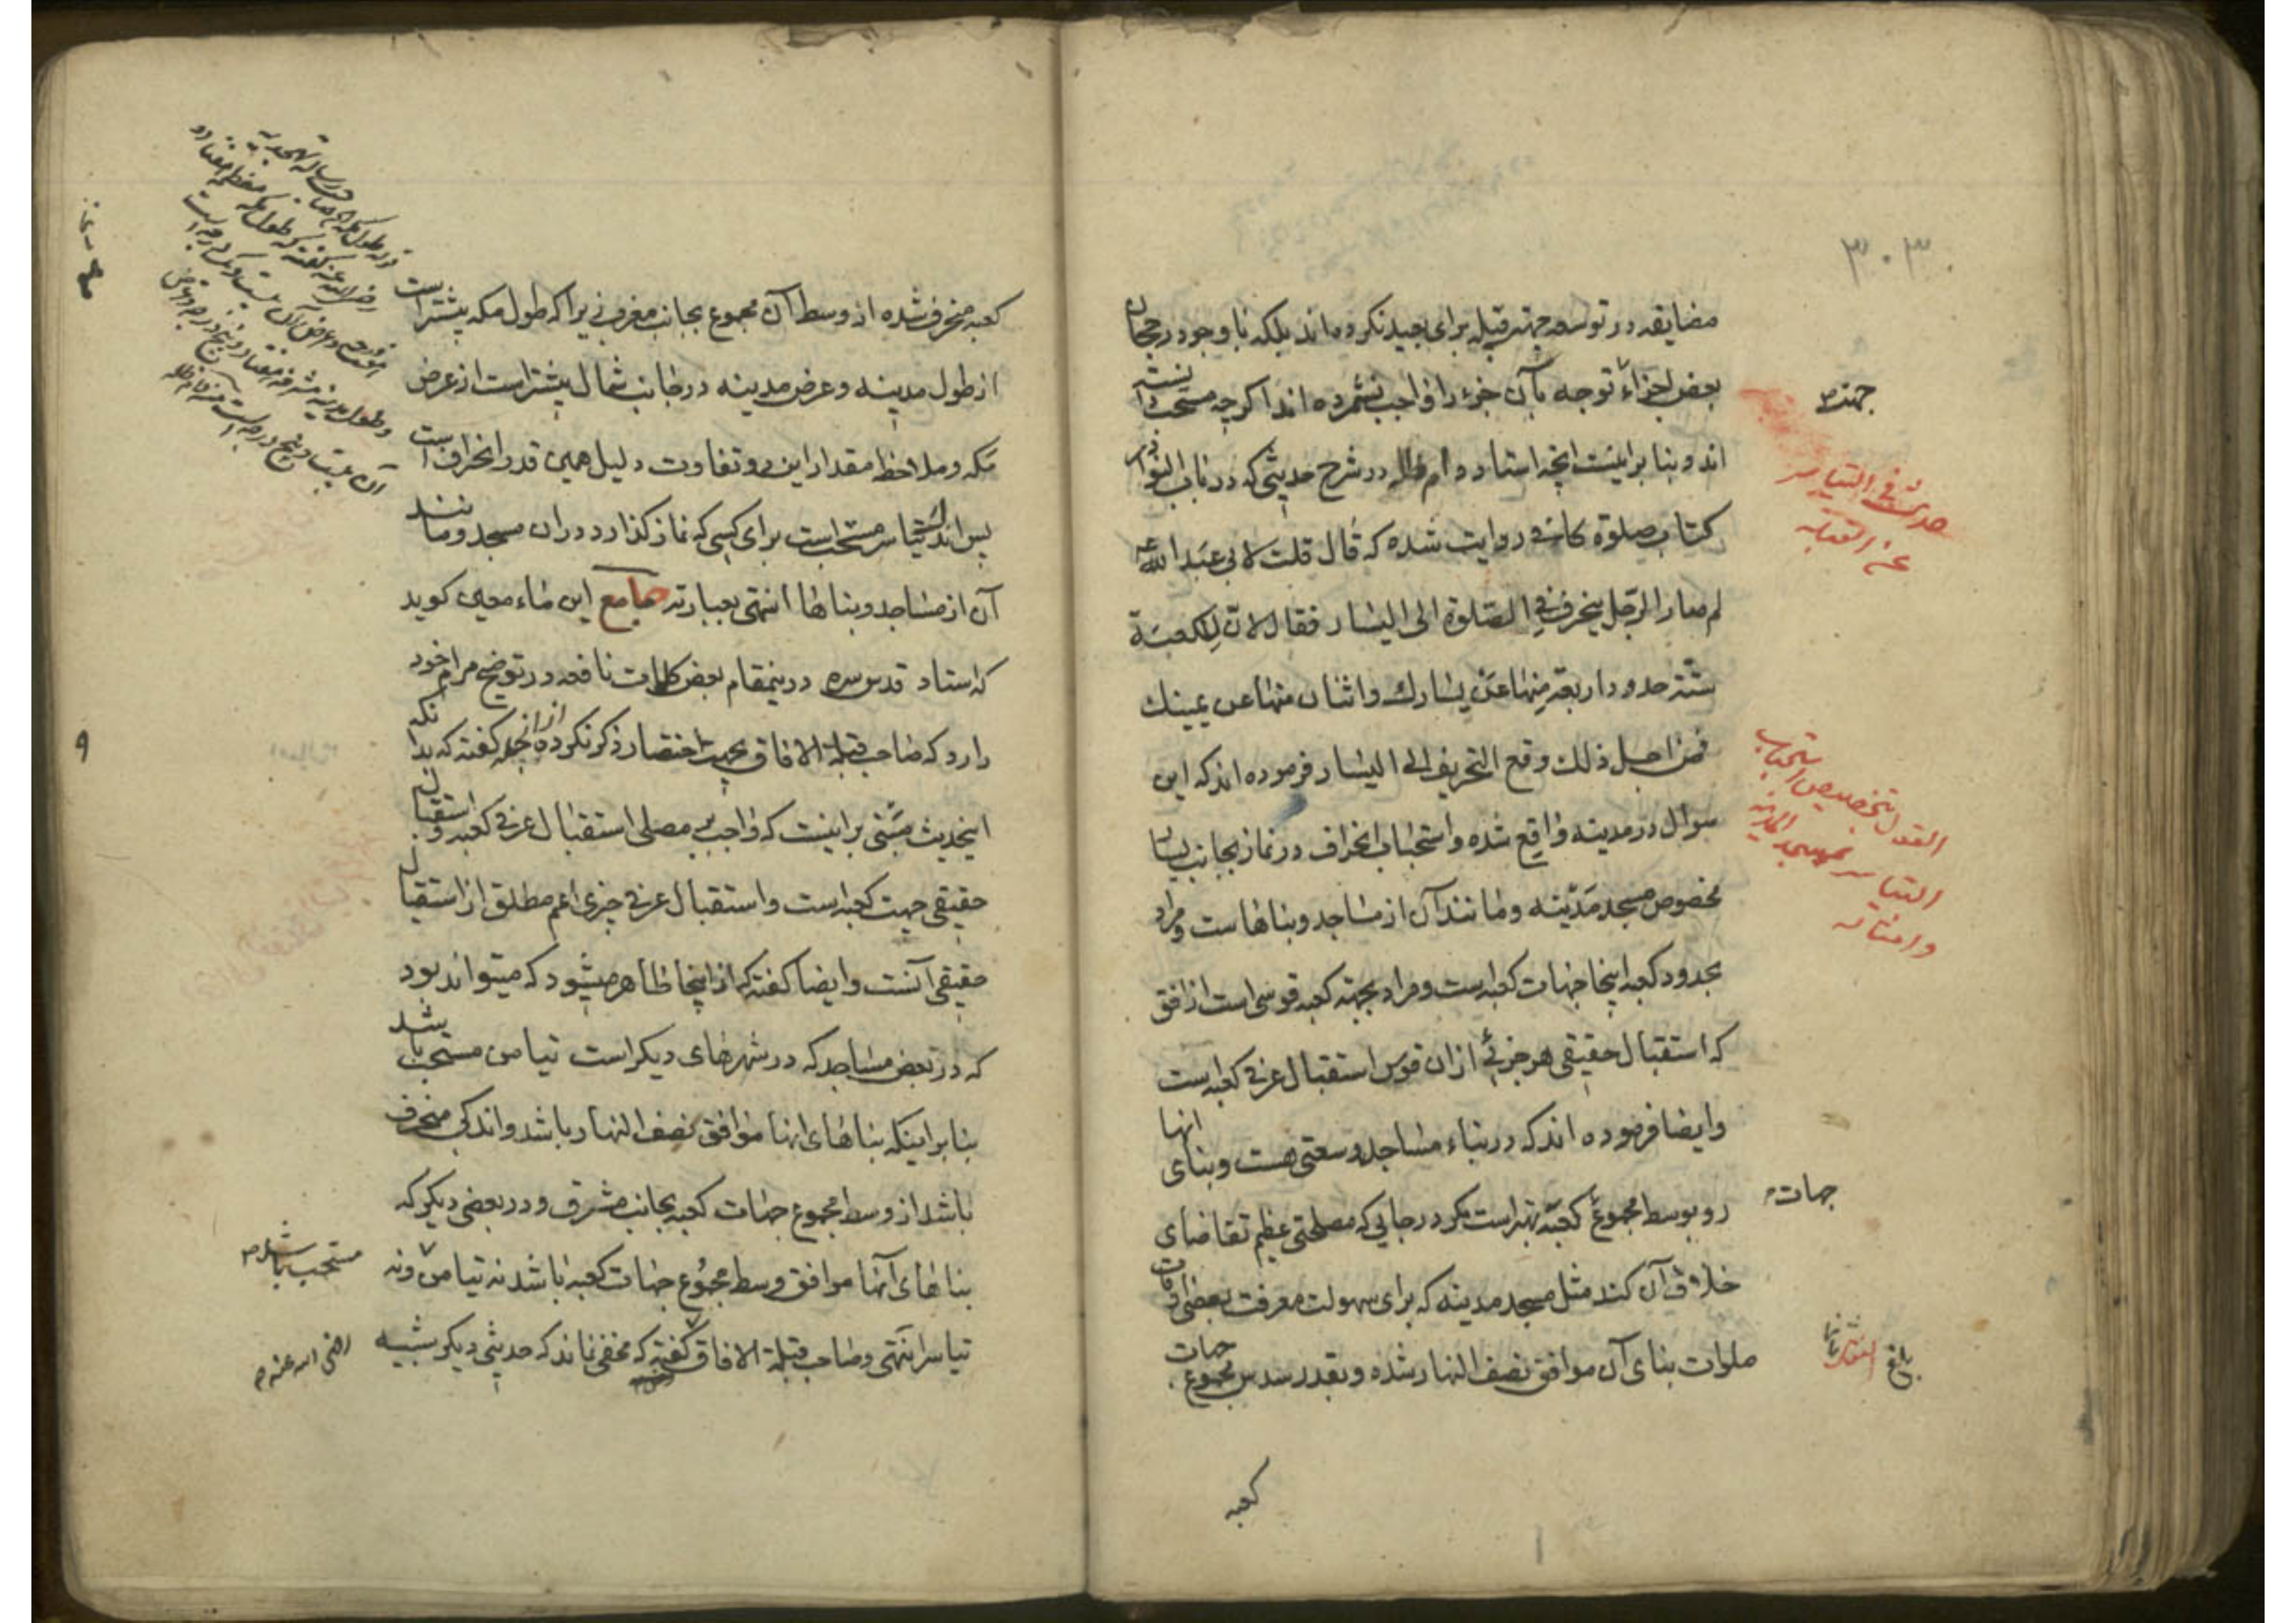 ۳۰۳
مضایقه در توسعه جهة قبله برای بعید نکرده‌اند بلکه با وجود رجحان
بعض اجزاء توجه بآن جزء را واجب نشمرده اند اگرچه مستحب دانسته
اند و بنا براینست انچه استاد دام ظله در شرح حدیثی که در باب النوادر
کتاب صلوة کافی روایت شده که قال قلت لابی عبد الله ع
لم صار الرجل ینحرف فی الصلوة الی الیسار فقال لان للکعبة
ستة حدود اربعة منها عن یسارك واثنان منها عن یمینك
فمن اجل ذلك وقع التحریف الی الیسار فرموده اند که این
سوال در مدینه واقع شده واستحباب انحراف در نماز بجانب یسار
مخصوص مسجد مدینه وما نند آن از مساجد وبناهاست ومراد
بحدود کعبه اینجا جهات کعبه است ومراد بجهة کعبه قوسی است از افق
که استقبال حقیقی هر جزئی ازان قوس استقبال عرفی کعبه است
وایضا فرموده اند که در بناء مساجد وسعتی هست وبنای انها
رو بوسط مجموع کعبه بهتر است مگر در جایی که مصلحتی عظیم تقاضای
خلاف آن کند مثل مسجد مدینه که برای سهولت معرفت بعضی اوقات
صلوات بنای آن موافق نصف النهار شده وبقدر سدس مجموع جهات
کعبه
جهة
حدیث فی التیاسر
عن القبلة
القول بتخصیص استحباب
التیاسر بمسجد المدینه
وامثاله
جهات
بلغ
کعبه منحرف شده از وسط آن مجموع بجانب مغرب زیرا که طول مکه بیشتر است
از طول مدینه وعرض مدینه در جانب شمال بیشتر است از عرض
مکه وملاحظه مقدار این دو تفاوت دلیل همین قدر انحراف است
پس اندك تیاسر مستحب است برای کسی که نماز گذارد دران مسجد ومانند
آن از مساجد وبناها انتهی بعبارته جامع این ماء معین گوید
که استاد قدس سره درینمقام بعض کلمات نافعه در توضیح مرام خود
دارد که صاحب قبلة الافاق بجهت اختصار ذکر نکرده از انجمله گفته که بدانکه
اینحدیث مبتنی براینست که واجب بر مصلی استقبال عرفی کعبه واستقبال
حقیقی جهت کعبه است واستقبال عرفی چیزی اعم مطلق از استقبال
حقیقی آنست وایضا گفته که از اینجا ظاهر میشود که میتواند بود
که در بعض مساجد که در شهرهای دیگر است تیامن مستحب باشد
بنا براینکه بناهای انها موافق نصف النهار باشد واندکی منحرف
باشد از وسط مجموع جهات کعبه بجانب مشرق ودر بعضی دیگر که
بناهای آنها موافق وسط مجموع جهات کعبه باشد نه تیامن ونه
تیاسر انتهی وصاحب قبلة الافاق گفته که مخفی نماند که حدیثی دیگر شبیه
مستحب باشد
رضی الله عنه